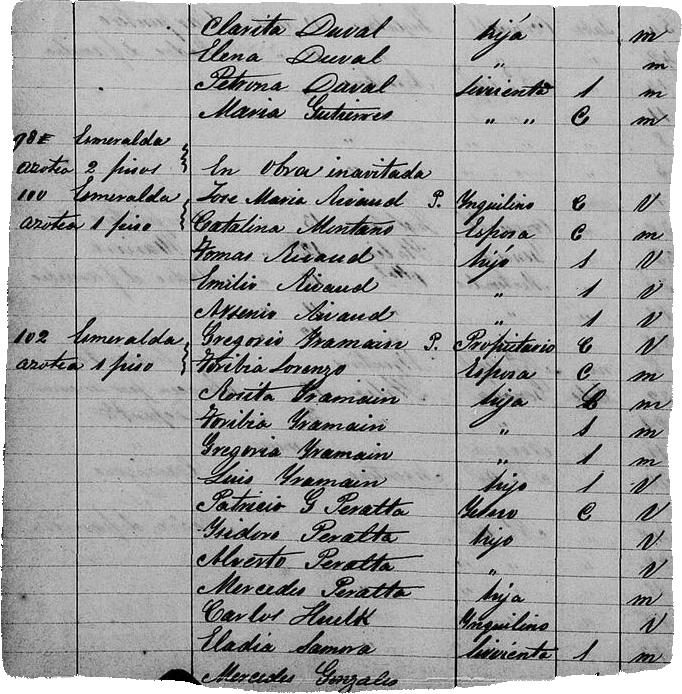 Clarita Duval hija m
Elena Duval " m
Petrona Duval Sirvienta S m
Maria Gutierres " " C m
98E Esmeralda
azotea 2 pisos En obra inavitada
100 Esmeralda Jose Maria Rivaud P. Ynquilino C V
azotea 1 piso Catalina Montano Esposa C m
Tomas Rivaud hijo S V
Emilio Rivaud " S V
Arsenio Rivaud " S V
102 Esmeralda Gregorio Yramain P. Propietario C V
azotea 1 piso Toribia Lorenzo Esposa C m
Rosita Yramain hija C m
Toribia Yramain " S m
Gregoria Yramain " S m
Luis Yramain hijo S V
Patricio G Peralta Yerno C V
Ysidoro Peralta hijo V
Alverto Peralta " V
Mercedes Peralta hija m
Carlos Ynquilino V
Eladia Samora Sirvienta S m
Mercedes Gonzales